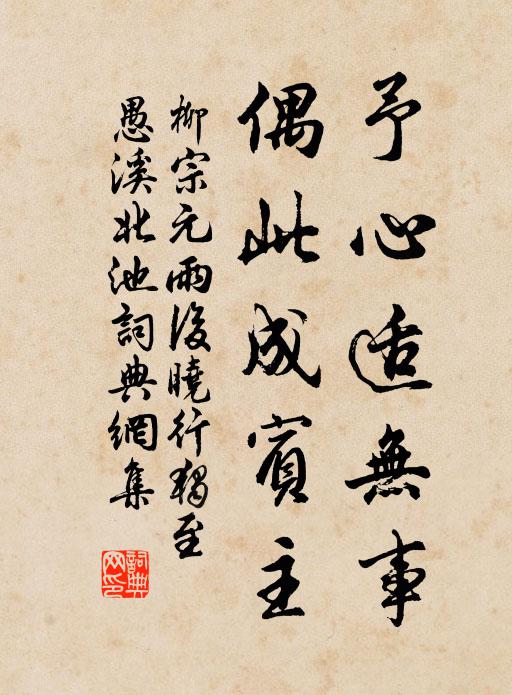 予心适無事
偶此成賓主
柳宗元雨後曉行獨至
愚溪北池詞典網集
詞典网印